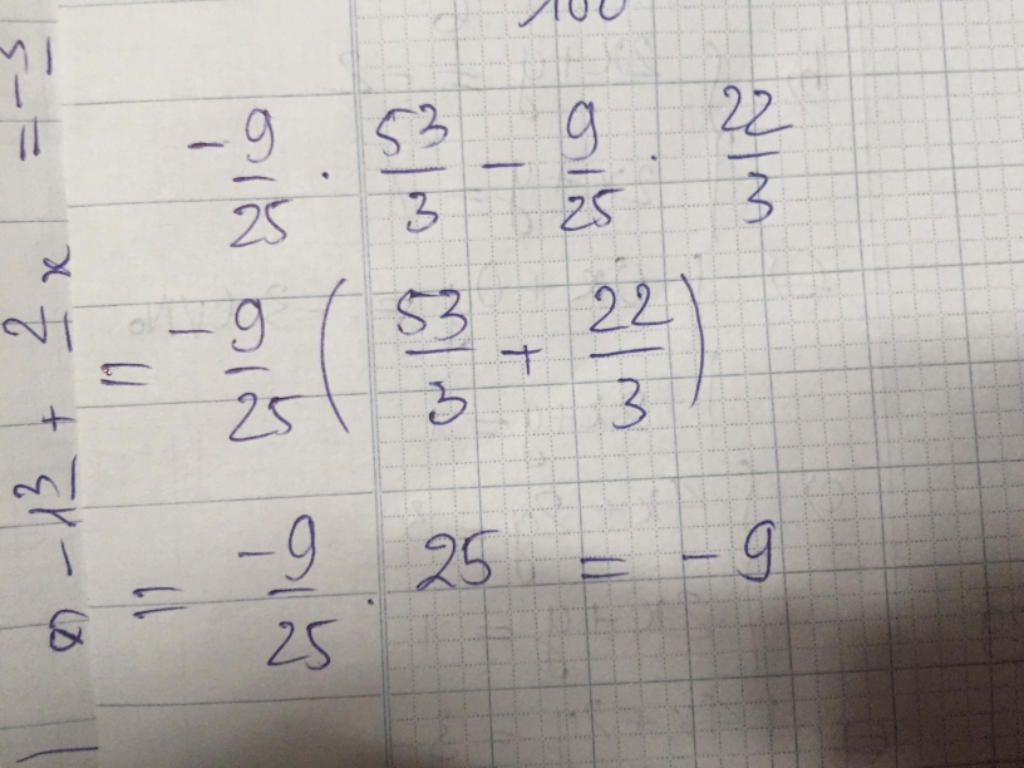 100
-9/25 . 53/3 - 9/25 . 22/3
= -9/25 ( 53/3 + 22/3 )
= -9/25 . 25 = -9
-13 + 2 x = -3